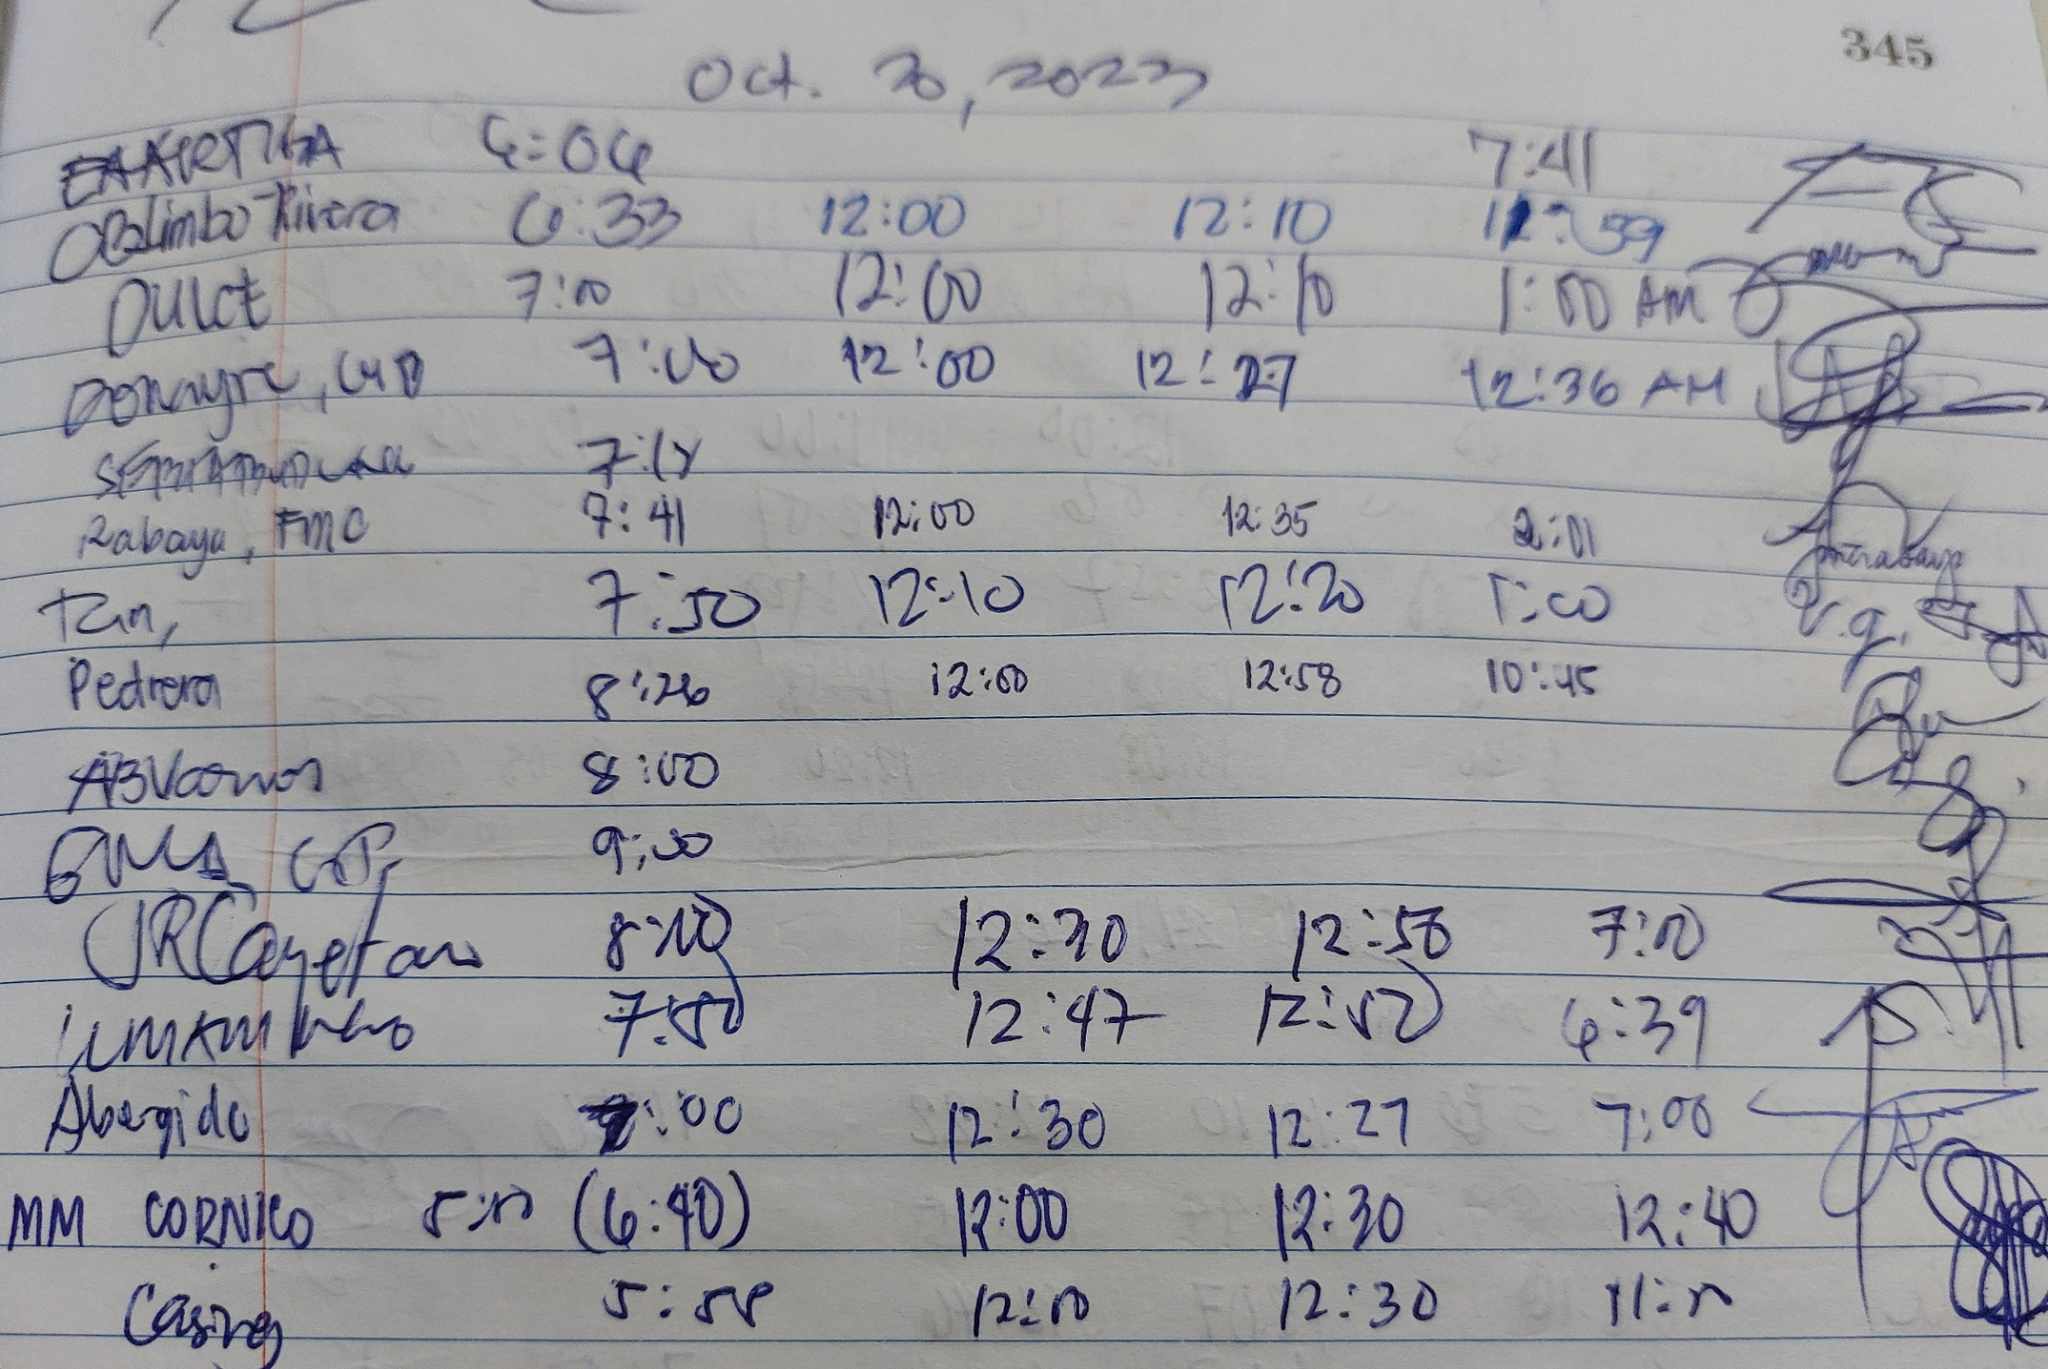 345
Oct. 20, 2023
6:06 7:41
Olimbo-Rivera 6:33 12:00 12:10 12:59
7:00 12:00 12:10 1:00 AM
Donayre, 7:00 12:00 12:27 12:36 AM
7:18
Rabaya, FMC 7:41 12:00 12:35 2:01
Tan, 7:50 12:10 12:20 1:00
Pedrera 8:26 12:00 12:58 10:45
8:00
9:00
JRCayetano 8:00 12:30 12:58 7:00
7:50 12:47 12:52 6:39
Abergido :00 12:30 12:27 7:00
MM CORNICO 5:00 (6:40) 12:00 12:30 12:40
Casing 5:58 12:00 12:30 11:00